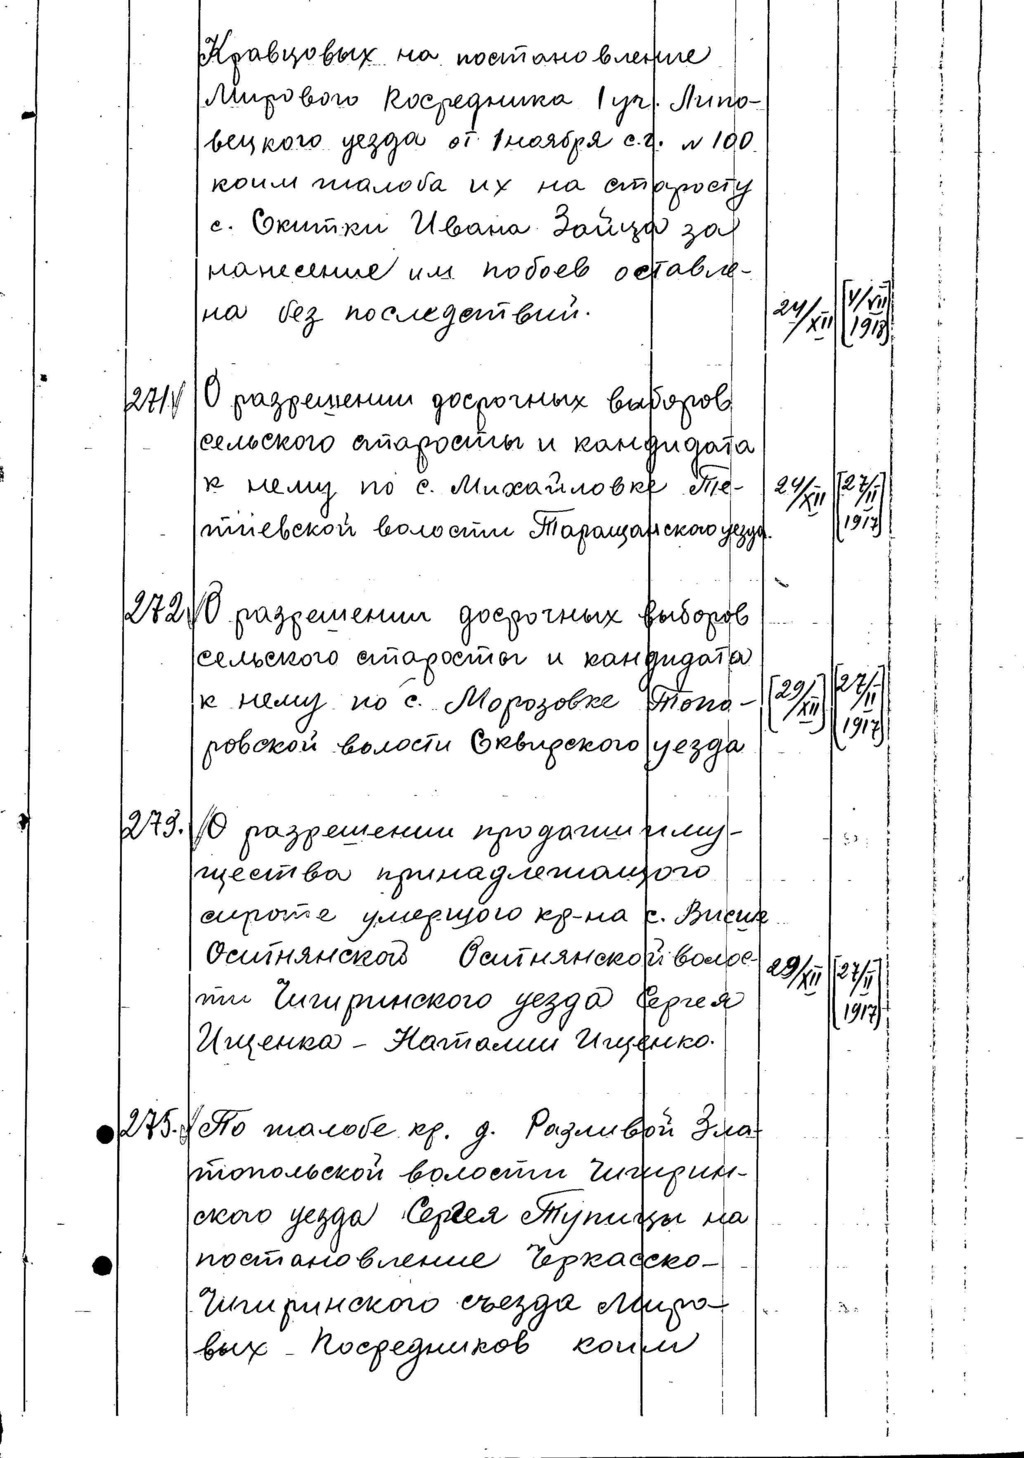 Кравцовых на постановление
Мирового Посредника 1 уч. Липо-
вецкого уезда от 1 ноября с.г. № 100
коим жалоба их на старосту
с. Скитки Ивана Зайца за
нанесение им побоев оставле-
на без последствий. 24/XII [V/VII 1918]
271 О разрешении досрочных выборов
сельского старосты и кандидата
к нему по с. Михайловке Те- 24/XII [27/II 1917]
тиевской волости Таращанского уезда.
272 О разрешении досрочных выборов
сельского старосты и кандидата
к нему по с. Морозовке Топо- [29/XII] [27/II 1917]
ровской волости Сквирского уезда
273. О разрешении продажи иму-
щества принадлежащого
сироте умершого кр-на с. Висше
Оситнянской Оситнянской волос- 29/XII [27/II 1917]
ти Чигиринского уезда Сергея
Ищенка - Наталии Ищенко.
275. По жалобе кр. д. Разливой Зла-
топольской волости Чигирин-
ского уезда Сергея Тупицы на
постановление Черкасско-
Чигиринского съезда Миро-
вых Посредников коим